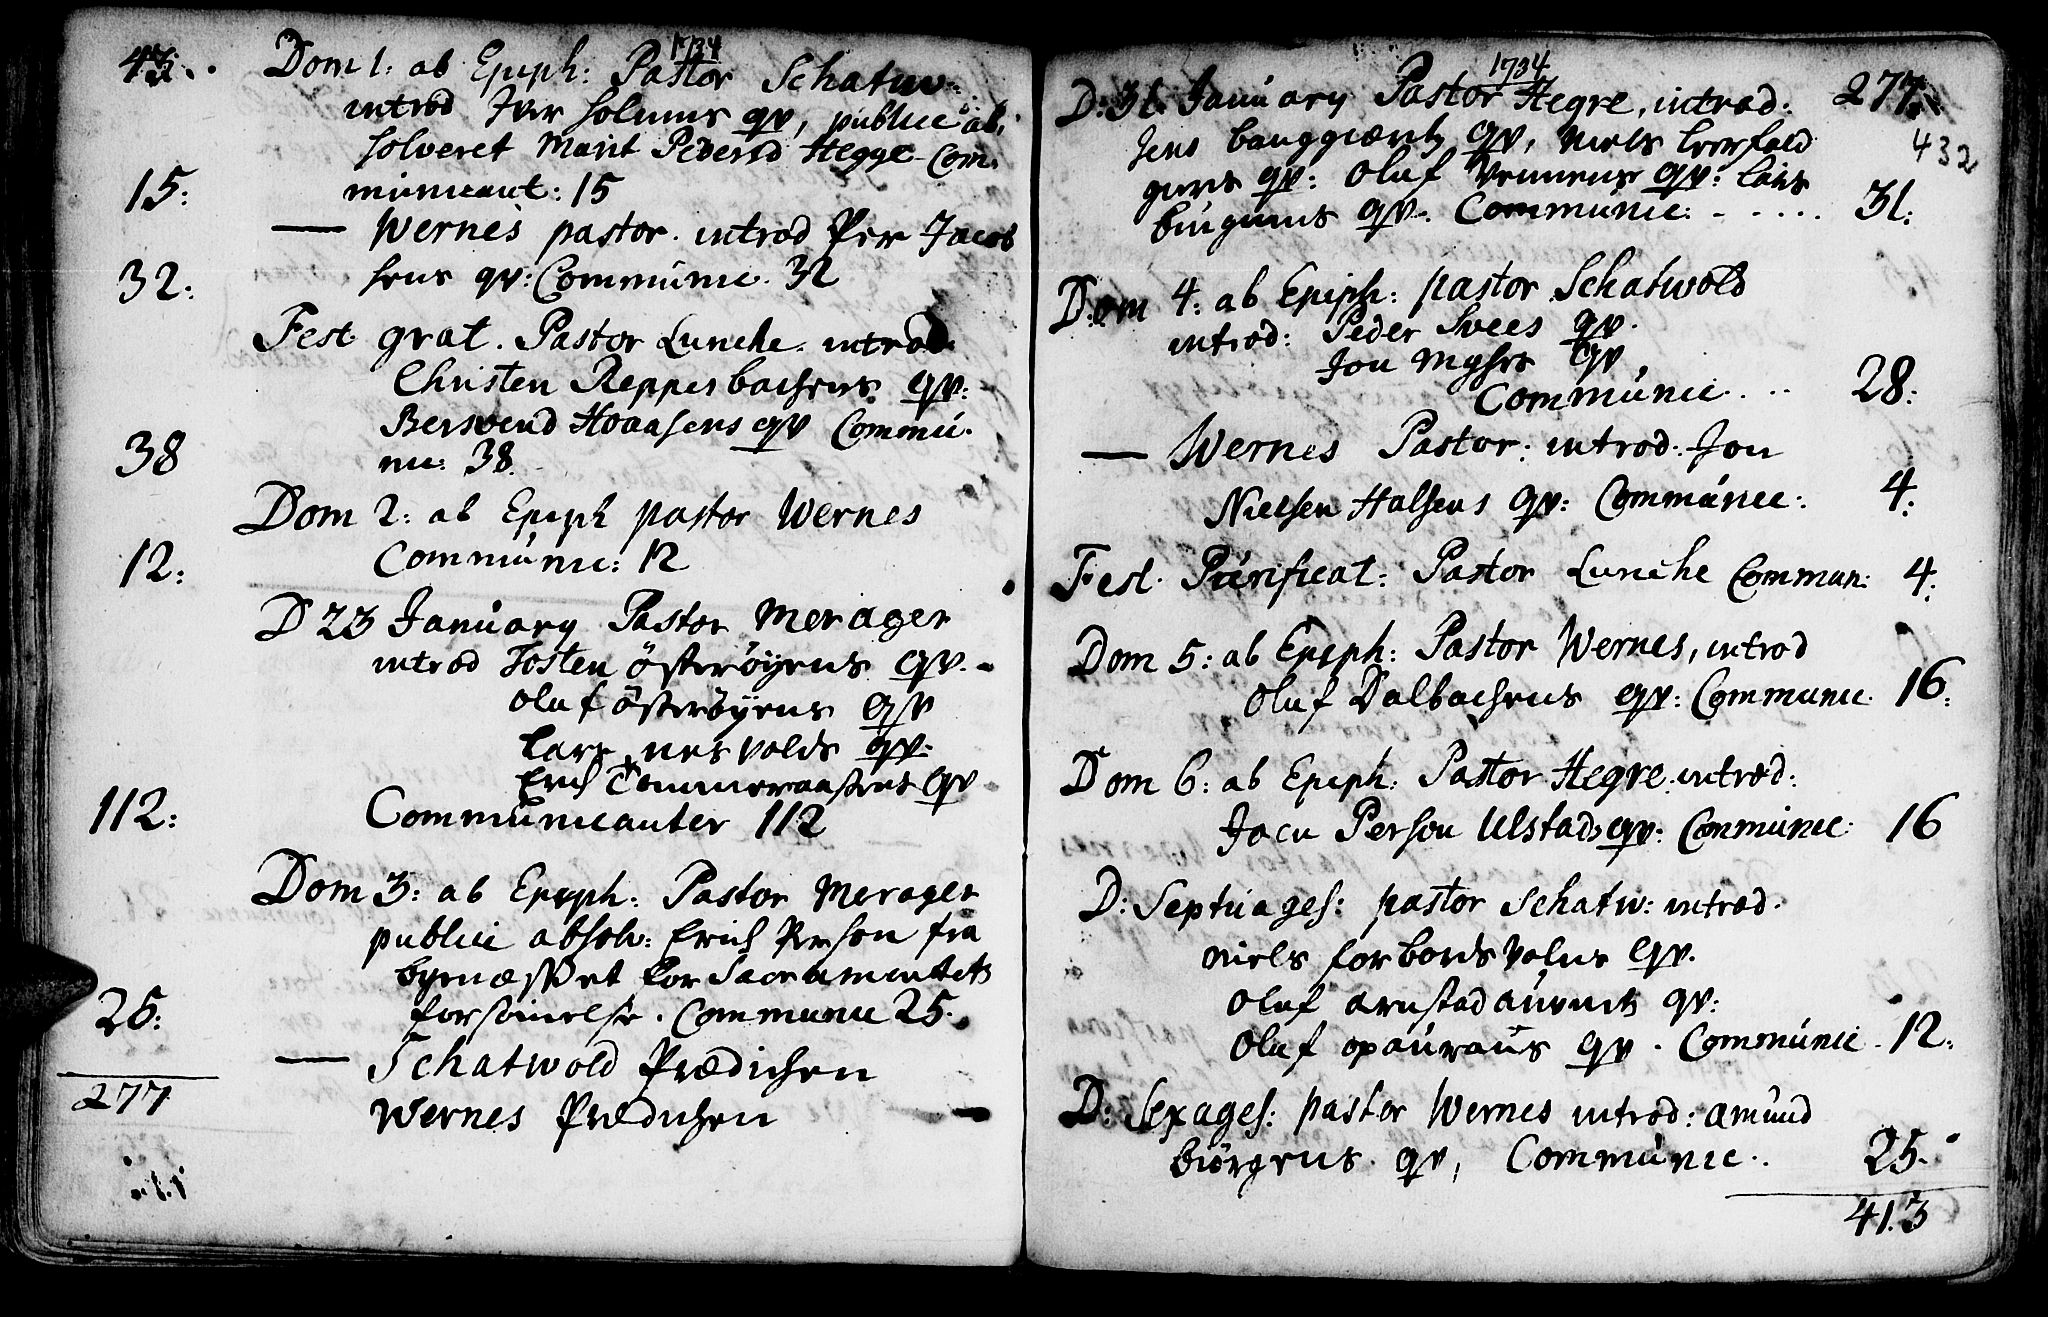 1734
43. Dom 1: ab Epiph: Pastor Schatw:
introd Iver solums qv, publicè ab,
solveret Marit Pedersd Hegge Com,
15: municant: 15
— Wernes pastor. introd Per Jacob
32: sens qv: Communic. 32
Fest grat. Pastor Lunche. introd.
Christen Reppesbachens qv:
Bersvend Hoaasens qv Commu-
38 nic: 38.
Dom 2: ab Epiph pastor Wernes
12: Communic: 12
D 23 January Pastor Merager
introd Tosten österöyens qv.
Oluf österöyens qv
Lars nesvolds qv:
Erich Tommeraasens qv
112: Communicanter 112
Dom 3: ab Epiph: Pastor Merager
publici absolv: Erich Person fra
bynæsset for Sacramentets
25: forsømelse. Communic 25.
— Schatwold Prædichen
277 Wernes Prædichen —
1734
D: 31 January Pastor Hegre, introd: 277.
432
Jens qv, Niels
qv: Oluf Vennens qv: Lars
qv. Communic. - - . . . 31:
Dom 4: ab Epiph: pastor Schatwold
introd: Peder Svees qv.
Jon Myhrs qv,
Communic. . . . 28:
— Wernes Pastor. introd. Jon
Nielsen Halsens qv: Communic: 4:
Fest. Purificat: Pastor Lunche Commun: 4:
Dom 5: ab Epiph: Pastor Wernes, introd
Oluf Dalbachens qv: Communic. 16:
Dom 6: ab Epiph: Pastor Hegre. introd:
Jocu Person Ulstads qv: Communic: 16
D: Septuages: pastor Schatw: introd.
Niels forbordsvolns qv.
Oluf arnstad qv:
Oluf opauraus qv. Communic. 12:
D: Sexages: pastor Wernes introd: Amund
biörgens. qv, Communic.. 25.
413